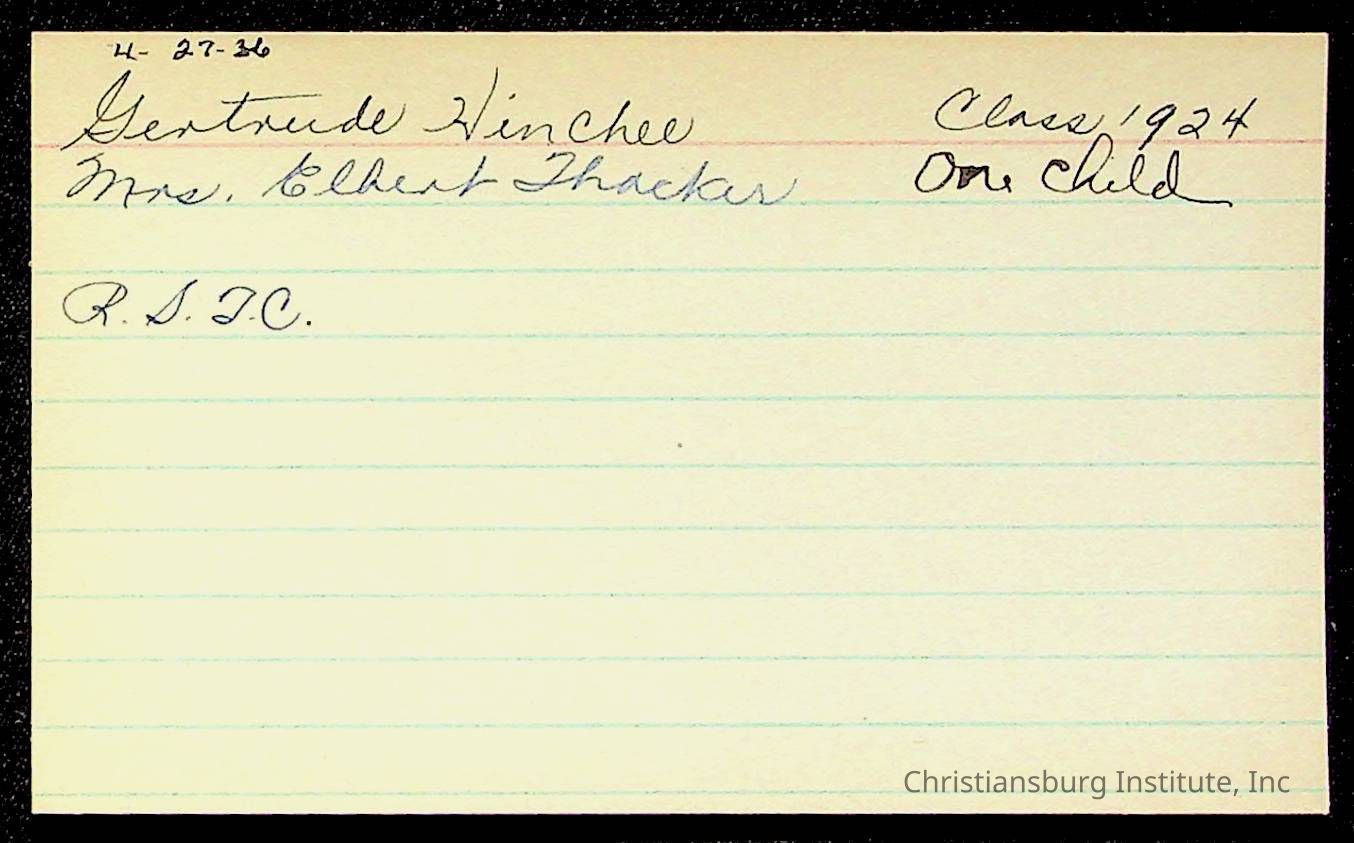 4- 27-36
Gertrude Hinchee Class 1924
Mrs. Elbert Thacker One child
R. S. T.C.
Christiansburg Institute, Inc